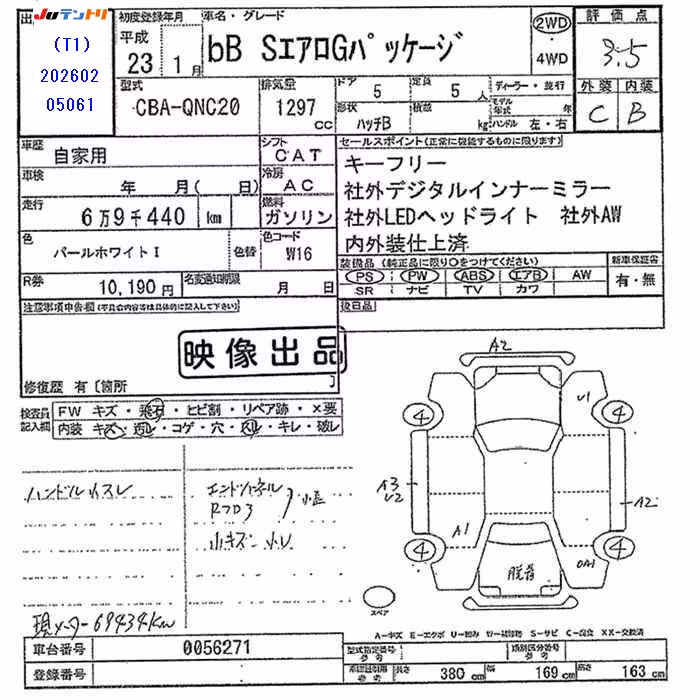 出 JUテントリ
(T1)
202602
05061
初度登録年月 車名・グレード 2WD 評価点
平成 23 1月 bB SエアロGパッケージ ・ 4WD 3.5
型式 排気量 ドア 定員 ディーラー・並行 外装 内装
CBA-QNC20 1297 cc 5 5人 モデル年式 年 C B
形状 積載 ハッチB kg ハンドル 左・右
車歴 自家用 シフト CAT セールスポイント(正常に機能するものに限ります)
車検 年 月(日) 冷房 AC キーフリー
走行 6万9千440 km 燃料 ガソリン 社外デジタルインナーミラー
社外LEDヘッドライト 社外AW
色 パールホワイトI 色替 色コード W16 内外装仕上済
装備品(純正品に限り○をつけてください) 新車保証書
R券 10,190円 名変通知期限 月 日 PS PW ABS エアB AW 有・無
SR ナビ TV カワ
注意事項申告欄(不具合内容等は具体的に記入して下さい) 後日品
映像出品
修復歴 有〔箇所 〕
検査員 FW キズ・飛石・ヒビ割・リペア跡・×要
記入欄 内装 キズ・汚レ・コゲ・穴・スレ・キレ・破レ
A2
U1
4 4
ハンドルカスレ エンドパネル
A3 A2
小キズ
A1
4 4
脱着
スペア
現メーター 69434km
A-キズ E-エクボ U-凹み W-補修跡 S-サビ C-腐食 XX-交換済
車台番号 0056271 型式指定番号 参考 類別区分番号 参考
登録番号 車庫証明用 参考 長さ 380 cm 幅 169 cm 高さ 163 cm